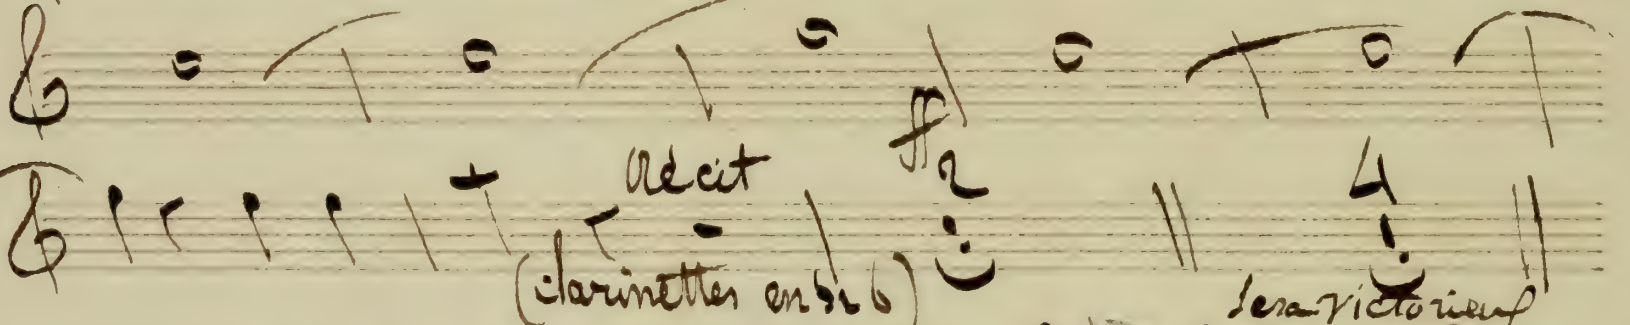 ff
Récit
2
4
(clarinettes en si b)
sera victorieux